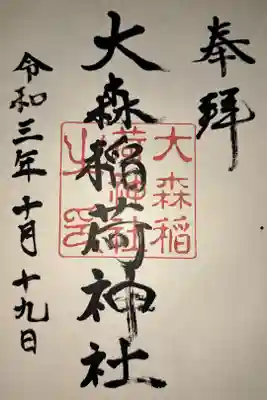 奉拝
大森稲荷神社
大森稲
荷神社
之印
令和三年十月十九日